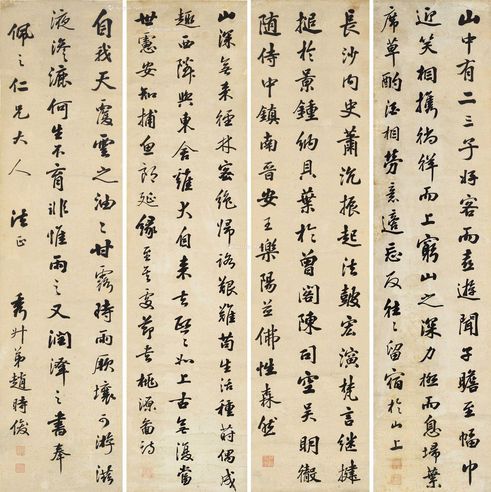 山中有二三子好客而喜遊聞子瞻至幅巾
迎笑相攜徜徉而上窮山之深力極而息掃葉
席草酌酒相勞意適忘反往々留宿於山上
長沙內史蕭沇振起法鼓宏演梵言繼揵
槌於景鍾納貝葉於曾閣陳司空吳明徹
隨侍中鎮南晉安王樂陽並佛性森然
山深無來徑林密絕歸路艱難苟生活種蒔偶成
趣西隣與東舍雞犬自來去熙々如上古無復當
世慮安知捕魚郎延緣至其處節書桃源圖詩
自我天覆雲之油々甘露時雨厥壤可游滋
液滲漉何生不育非惟雨之又潤澤之書奉
佩之仁兄大人 法正 秀升弟趙時俊